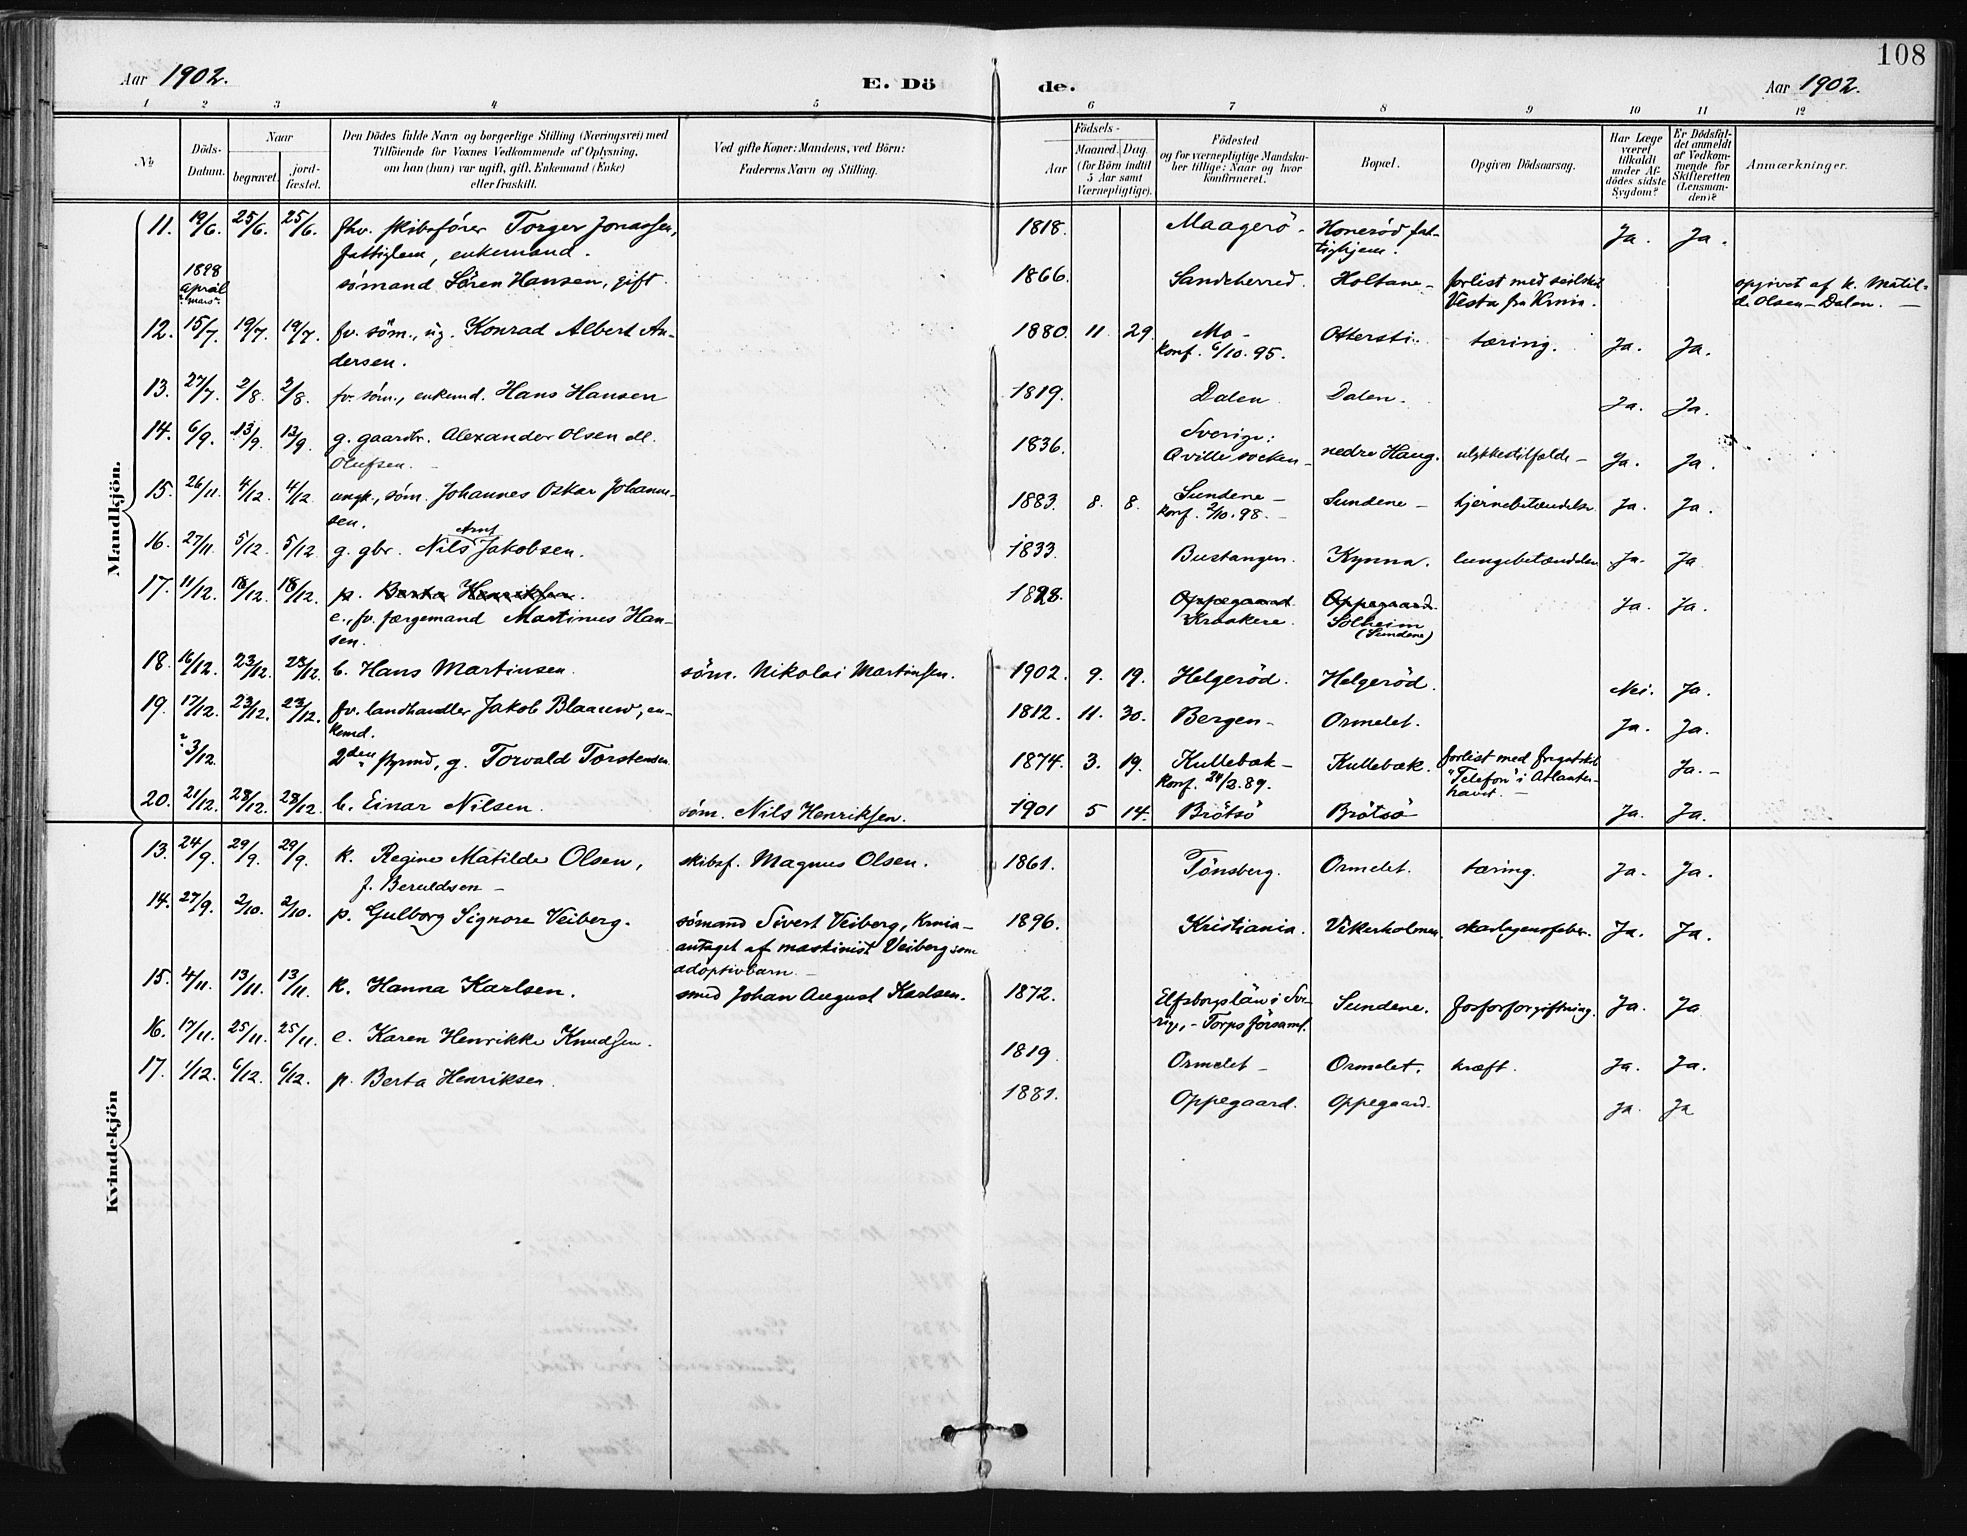 108
Aar 1902. E. Dö de. Aar 1902.
1 2 3 4 5 6 7 8 9 10 11 12
№
Döds-
Datum.
Naar
begravet.
jord-
fæstet.
Den Dödes fulde Navn og borgerlige Stilling (Næringsvei) med
Tilföiende for Voxnes Vedkommende af Oplysning,
om han (hun) var ugift, gift, Enkemand (Enke)
eller fraskilt.
Ved gifte Koner: Mandens, ved Börn:
Faderens Navn og Stilling.
Födsels-
Aar
Maaned. Dag.
(for Börn indtil
5 Aar samt
Værnepligtige).
Födested
og for værnepligtige Mandska-
ber tillige: Naar og hvor
konfirmeret.
Bopæl.
Opgiven Dödsaarsag.
Har Læge
været
tilkaldt
under Af-
dödes sidste
Sygdom?
Er Dödsfal-
det anmeldt
af Vedkom-
mende for
Skifteretten
(Lensman-
den)?
Anmærkninger.
Mandkjön.
11. 19/6. 25/6. 25/6. fhv. skibsfører Torger Jonassen, 1818. Maagerö. Honeröd fat- Ja. Ja.
fattiglem, enkemand. tighjem.
1898 april "mars" sømand Sören Hansen, gift. 1866. Sandeherred. Holtane- forlist med seilskib opgivet af k. Matil-
Vesta fra Krnia. de Olsen - Dalen. -
12. 15/7. 19/7. 19/7. fv. söm., ug. Konrad Albert An- 1880. 11 29. Mo- Ottersti. tæring. Ja. Ja.
dersen. Konf. 6/10. 95.
13. 27/7. 2/8. 2/8. fv. söm., enkemd. Hans Hansen 1819. Dalen. Dalen. Ja. Ja.
14. 6/9. 13/9. 13/9. g. gaardbr. Alexander Olsen ell. 1836. Sverige: nedre Haug. ulykkestilfælde - Ja. Ja.
Olufsen. - Qville socken-
15. 26/11. 4/12. 4/12. ungk., söm. Johannes Oskar Johann- 1883. 8. 8. Sundene - Sundene - hjernebetændelse Ja. Ja.
sen. Konf. 2/10. 98. -
16. 27/11. 5/12. 5/12. g. gbr. Nils Arnt Jakobsen. 1833. Bustangen. Kynna. lungebetændelse Ja. Ja
17. 11/12. 18/12. 18/12. p. Berta Henriksen. 1828. Oppegaard. Oppegaard. Ja. Ja.
e., fv. færgemand Martinus Han- Kraakere. Solheim
sen. (Sundene)
18. 16/12. 23/12. 23/12. b. Hans Martinsen. söm. Nikolai Martinsen. 1902. 9. 19. Helgeröd. Helgeröd. Nei. Ja.
19. 17/12. 23/12. 23/12. fv. landhandler Jakob Blaauw, en- 1812. 11. 30. Bergen - Ormelet. Ja. Ja.
kemd.
? 3/12. 2den styrmd, g. Torvald Torstensen. 1874. 3. 19. Kullebæk - Kullebæk. forlist med fregatskib Ja. -
Konf. 24/2. 89. "Telefon" i Atlanter-
havet. -
20. 21/12. 28/12. 28/12. b. Einar Nilsen. söm. Nils Henriksen. 1901 5 14. Brötsö Brötsö Ja. Ja.
Kvindekjön
13. 24/9. 29/9. 29/9. k. Regine Matilde Olsen, skibsf. Magnus Olsen. 1861. Tönsberg. Ormelet. tæring. Ja. Ja.
f. Beruldsen -
14. 27/9. 2/10. 2/10. p. Gulborg Signore Veiberg. sömand Sivert Veiberg, Krnia - 1896. Kristiania. Vikerholmen. skarlagensfeber. Ja. Ja.
antaget af maskinist Veiberg som
adoptivbarn. -
15. 4/11. 13/11. 13/11. k. Hanna Karlsen. smed Johan August Karlsen. 1872. Elfsborgs län i Sve- Sundene. fosforforgiftning. Ja. Ja
rige, - Torps församl.
16. 17/11. 25/11. 25/11. e. Karen Henrikke Knudsen. 1819. Ormelet - Ormelet. kræft. Ja. Ja.
17. 1/12. 6/12. 6/12. p. Berta Henriksen. 1881. Oppegaard. Oppegaard. Ja. Ja